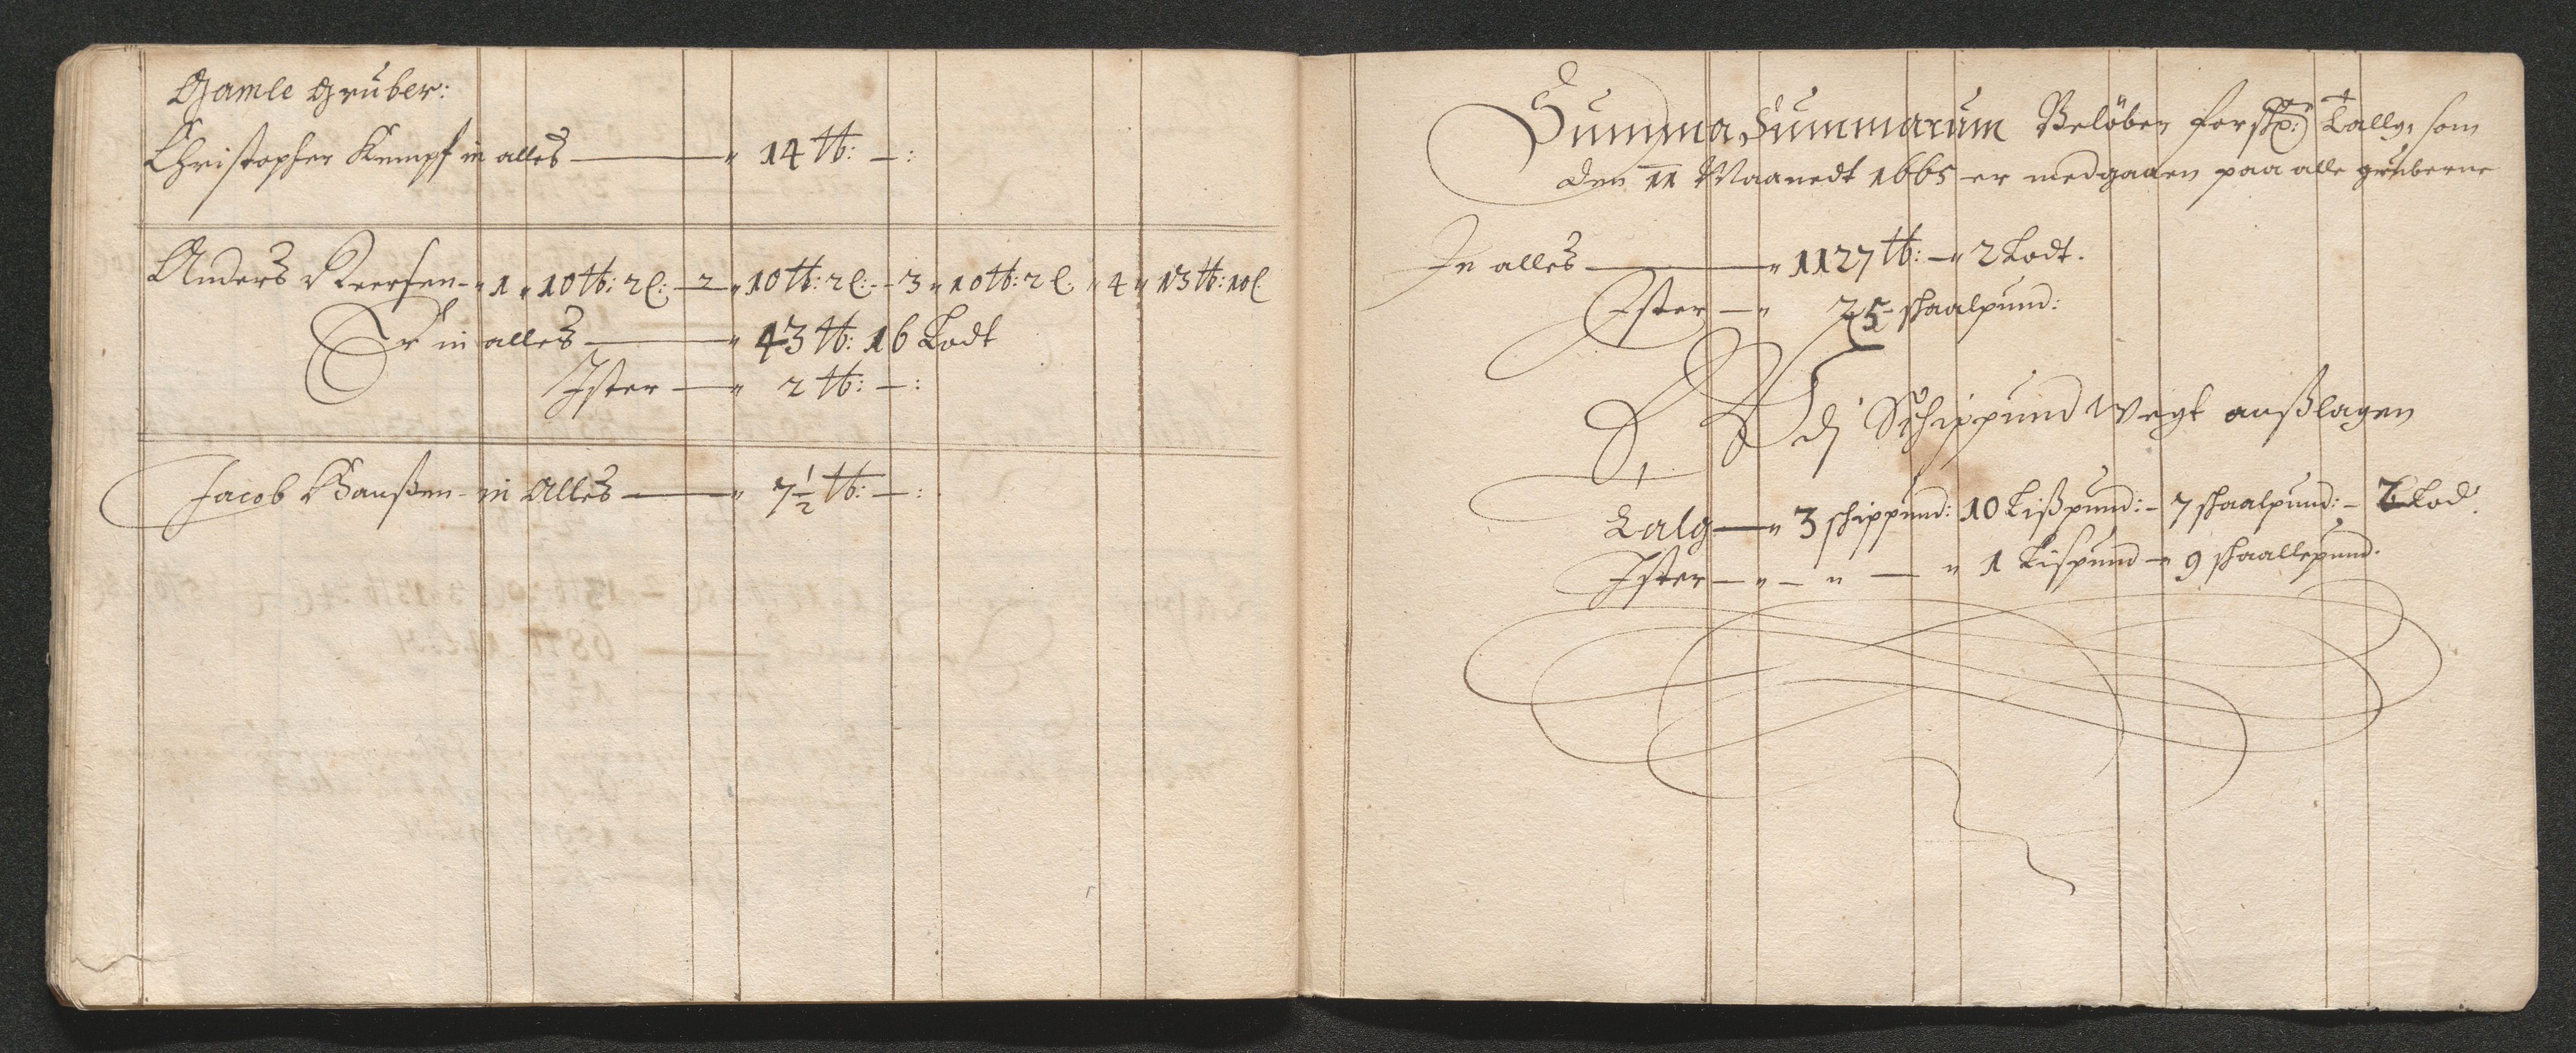 Gamle Gruber:
Christopher Kempf in alles — 14 ℔: —:
Anders Iversen - 1 " 10 ℔: 2 l: — 2 " 10 ℔: 2 l: - 3 " 10 ℔: 2 l. " 4 " 13 ℔: 10 l.
Er in alles — 43 ℔: 16 Lodt
Ister — " 2 ℔: —:
Jacob Hanßen - in Alles — 7 1/2 ℔: —:
Summa Summarum Beløber for Tallg, som
den 11 Maanedt 1665 er medgaaen paa alle gruberne
In alles — " 1127 ℔: — " 2 Lodt.
Ister — " 25 skaalpund:
Schippund Vegt anßlagen
Talg — " 3 schippund: 10 Lißpund: - 7 skaalpund: - 2 Lod:
Ister — " — " — " 1 Lispund — 9 skaallepund.